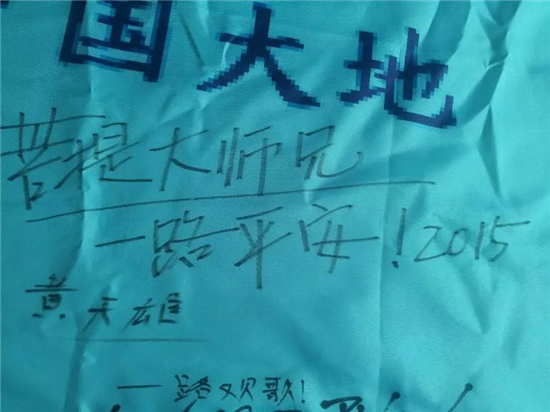 国大地
菩提大师兄
一路平安！2015
黄天雄
一路欢歌！